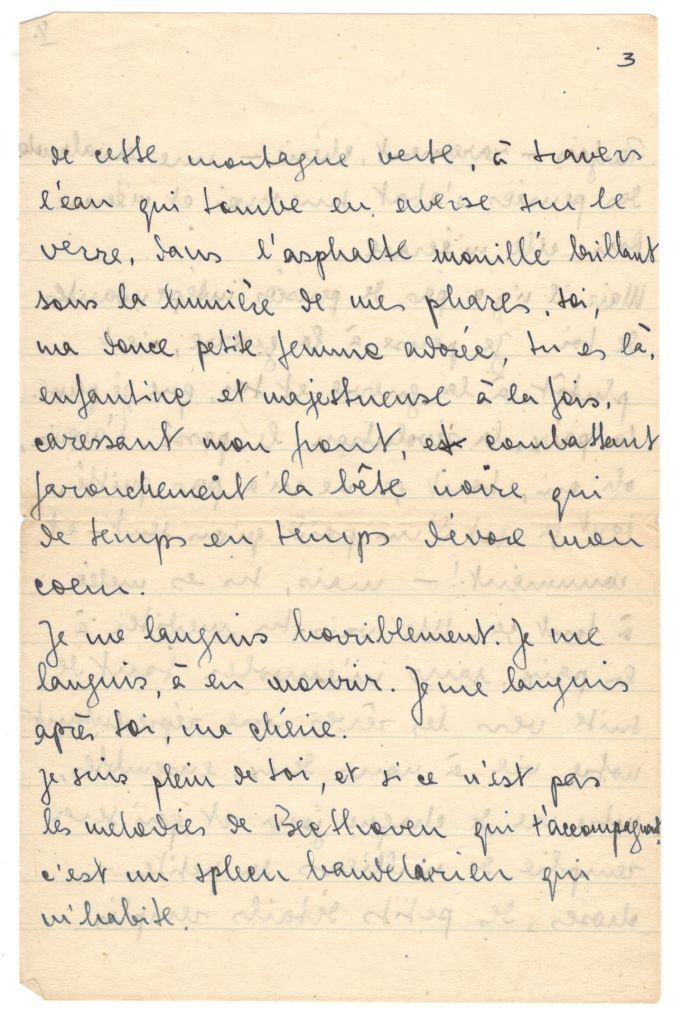 3
de cette montagne verte, à travers
l'eau qui tombe en averse sur le
verre, dans l'asphalte mouillé brillant
sous la lumière de mes phares, toi,
ma douce petite femme adorée, tu es là,
enfantine et majestueuse à la fois,
caressant mon front, et combattant
farouchement la bête noire qui
de temps en temps dévore mon
coeur.
Je me languis horriblement. Je me
languis, à en mourir. Je me languis
après toi, ma chérie.
Je suis plein de toi, et si ce n'est pas
les mélodies de Beethoven qui t'accompagnent,
c'est un spleen baudelairien qui
m'habite.